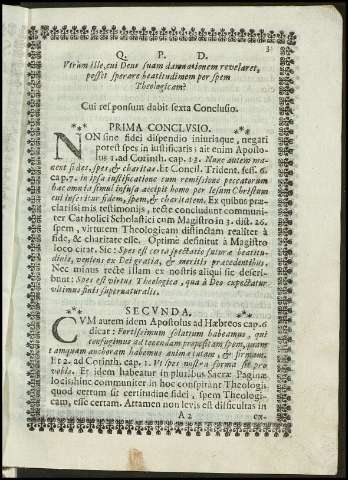 3
Q. P. D.
Vtrùm ille, cui Deus suam damnationem revelaret,
possit sperare beatitudinem per spem
Theologicam?
Cui responsum dabit sexta Conclusio.
PRIMA CONCLVSIO.
NON sine fidei dispendio iniuriaque, negari
potest spes in iustificatis: ait enim Aposto-
lus 1. ad Corinth. cap. 13. Nunc autem ma-
nent fides, spes, & charitas. Et Concil. Trident. sess. 6.
cap. 7. in ipsa iustificatione cum remissione peccatorum
hæc omnia simul infusa accipit homo per Iesum Christum
cui inseritur fidem, spem, & charitatem. Ex quibus præ-
clarissimis testimonijs, recte concludunt communi-
ter Catholici Scholastici cum Magistro in 3. dist. 26.
spem, virtutem Theologicam distinctam realiter à
fide, & charitate esse. Optimè definitur à Magistro
loco citat. Sic: Spes est certa spectatio futuræ beatitu-
dinis, veniens ex Dei gratia, & meritis præcedentibus.
Nec minus recte illam ex nostris aliqui sic descri-
bunt: Spes est virtus Theologica, qua à Deo expectatur
ultimus finis supernaturalis.
SECVNDA.
CVM autem idem Apostolus ad Hæbreos cap. 6
dicat: Fortissimum solatium habeamus, qui
confugimus ad tenendam propositam spem, quam
tamquam anchoram habemus animæ tutam, & firmam.
Et 2. ad Corinth. cap. 1. Vt spes nostra firma sit pro
vobis. Et idem habeatur in pluribus Sacræ Paginæ
locis hinc communiter in hoc conspirant Theologi
quod certum sit certitudine fidei, spem Theologi-
cam, esse certam. Attamen non levis est difficultas in
A 2
ex-